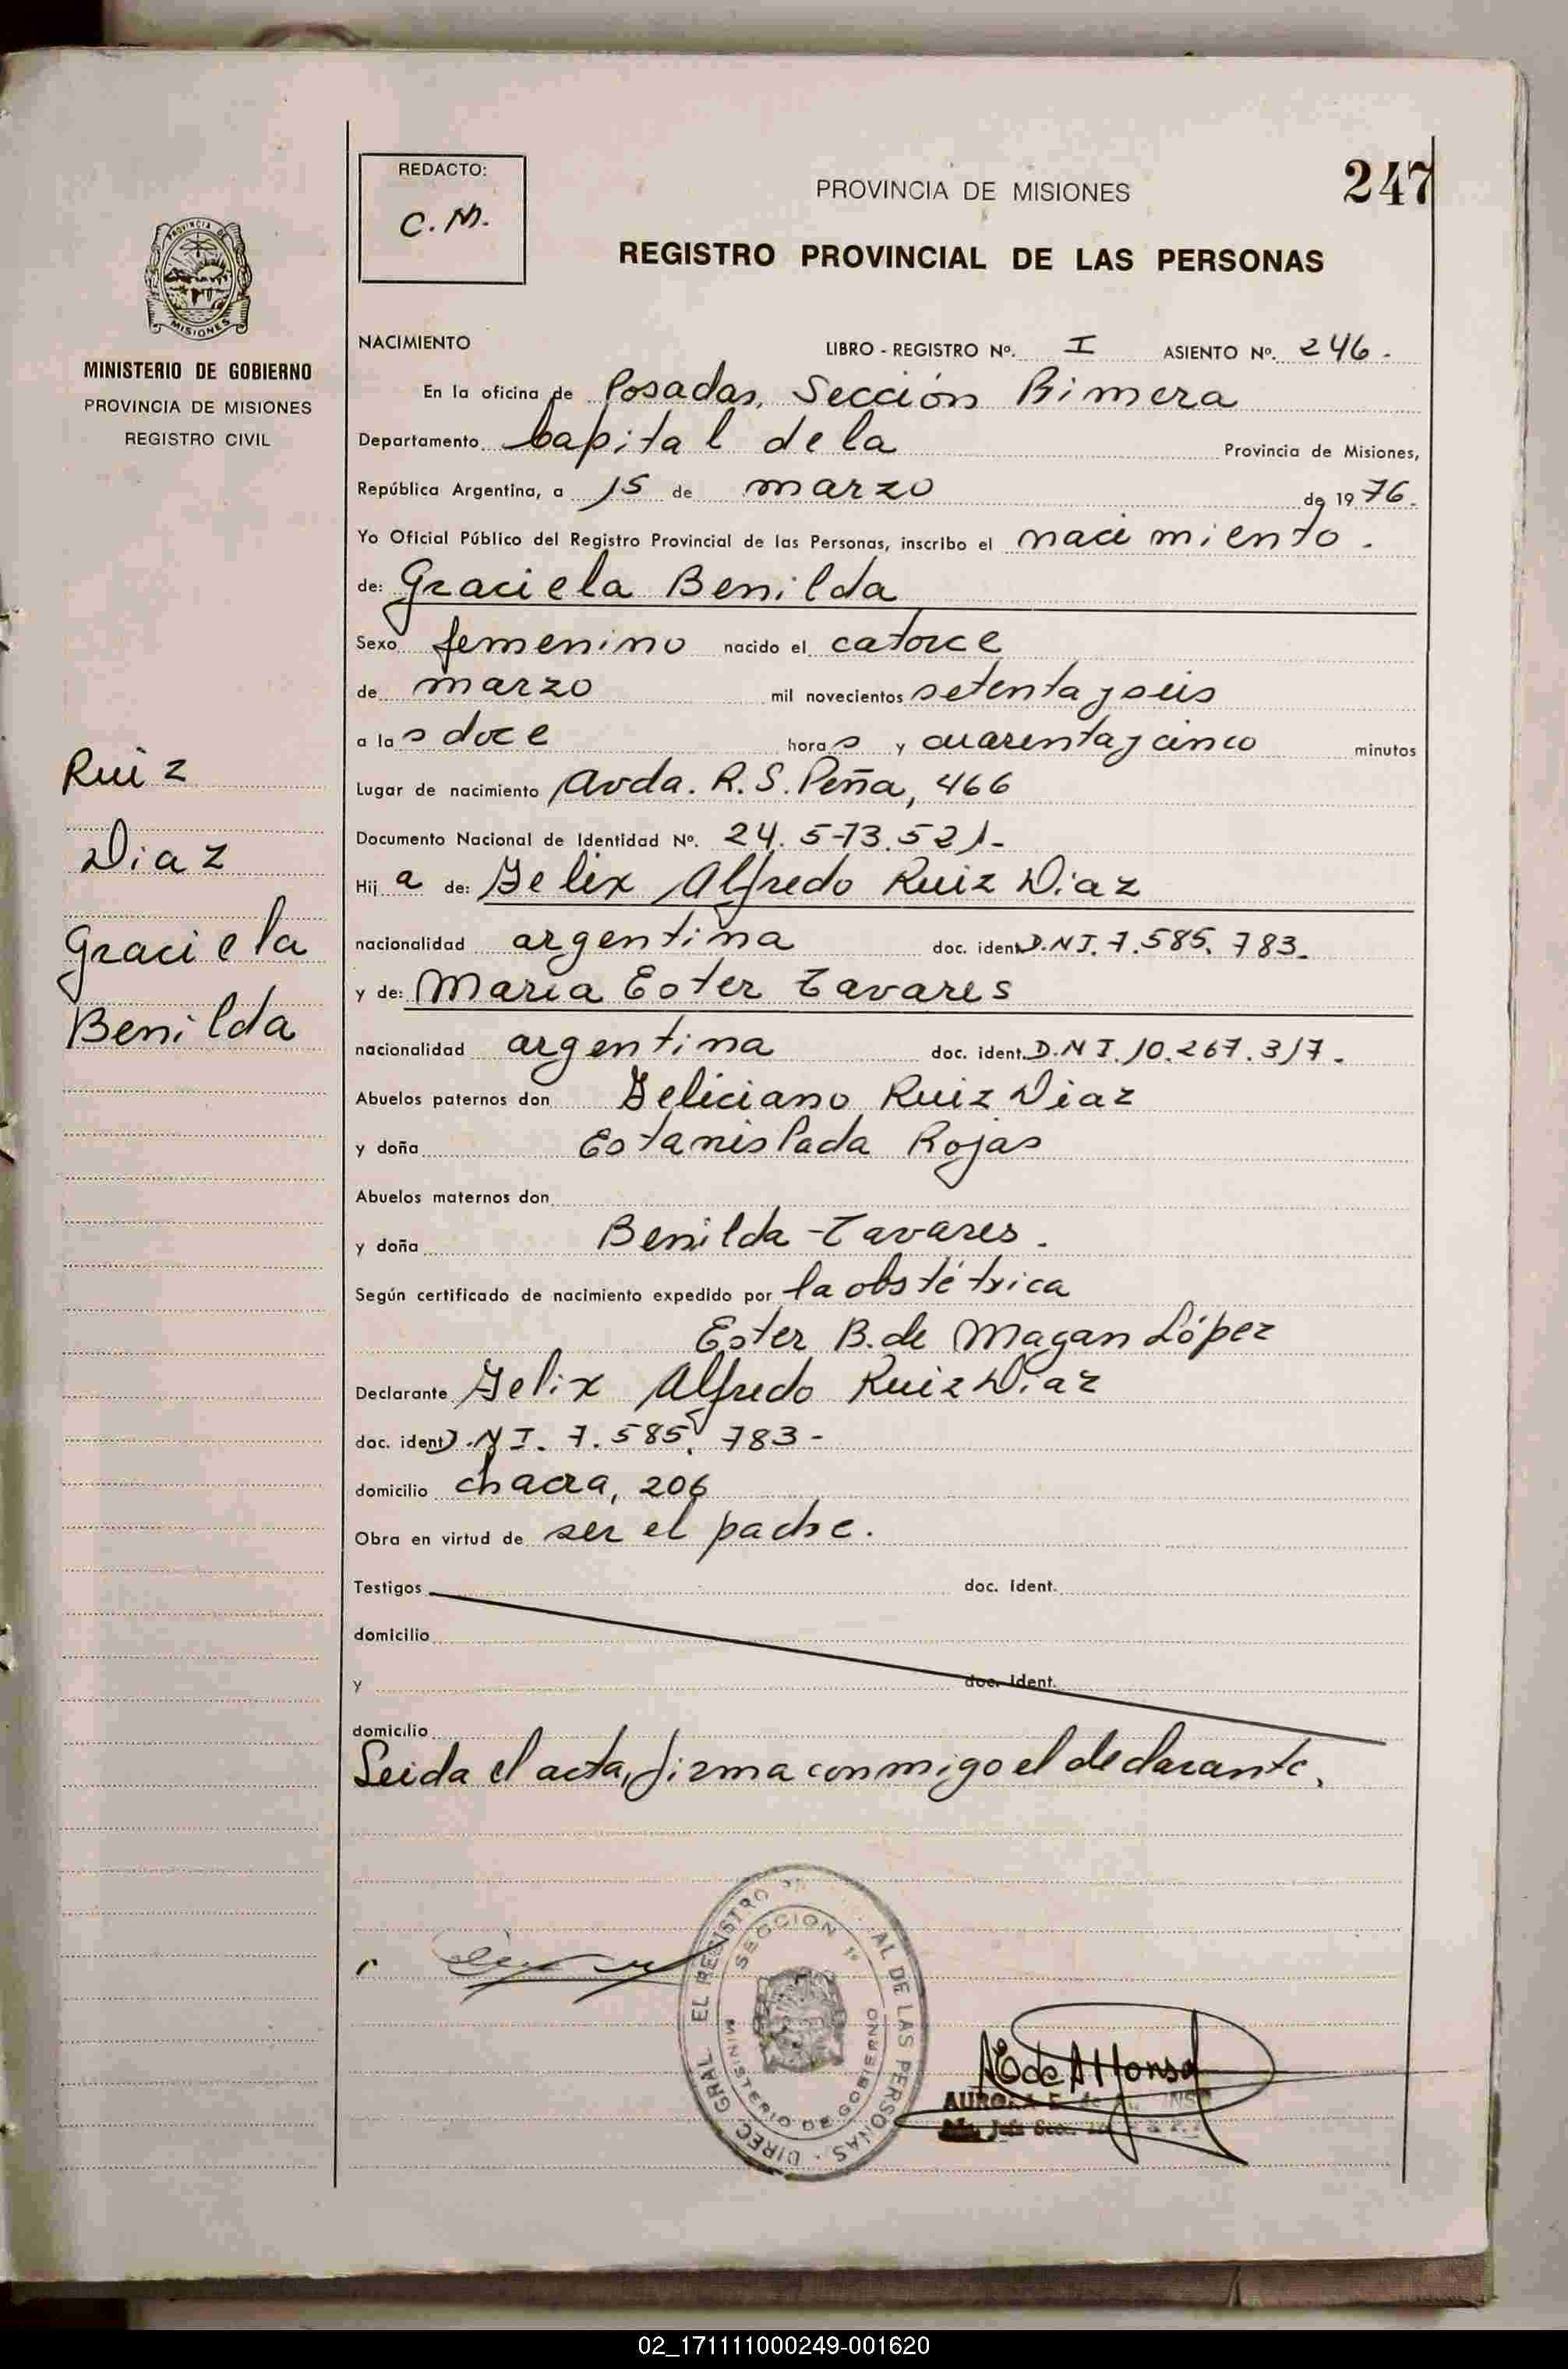 REDACTO:
C.M.
PROVINCIA DE MISIONES
247
REGISTRO PROVINCIAL DE LAS PERSONAS
PROVINCIA DE
MISIONES
MINISTERIO DE GOBIERNO
PROVINCIA DE MISIONES
REGISTRO CIVIL
Ruiz
Diaz
Graciela
Benilda
NACIMIENTO LIBRO - REGISTRO Nº. I ASIENTO Nº. 246.
En la oficina de Posadas, Sección Primera
Departamento Capital de la Provincia de Misiones,
República Argentina, a 15 de marzo de 1976.
Yo Oficial Público del Registro Provincial de las Personas, inscribo el nacimiento.
de: Graciela Benilda
Sexo femenino nacido el catorce
de marzo mil novecientos setenta y seis
a las doce horas y cuarenta y cinco minutos
Lugar de nacimiento Avda. R.S. Peña, 466
Documento Nacional de Identidad Nº. 24.573.521-
Hija de: Felix Alfredo Ruiz Diaz
nacionalidad argentina doc. ident. D.N.I. 7.585.783.
y de: Maria Ester Tavares
nacionalidad argentina doc. ident. D.N.I. 10.267.317.
Abuelos paternos don Feliciano Ruiz Diaz
y doña Estanislada Rojas
Abuelos maternos don
y doña Benilda Tavares.
Según certificado de nacimiento expedido por la obstétrica
Ester B. de Magan López
Declarante Felix Alfredo Ruiz Diaz
doc. ident D.N.I. 7.585.783-
domicilio chacra, 206
Obra en virtud de ser el padre.
Testigos doc. Ident.
domicilio
y doc. Ident.
domicilio
Leida el acta, firma conmigo el declarante.
DIREC. GRAL EL REGISTRO AL DE LAS PERSONAS
SECCION 1º
MINISTERIO DE GOBIERNO
02_171111000249-001620